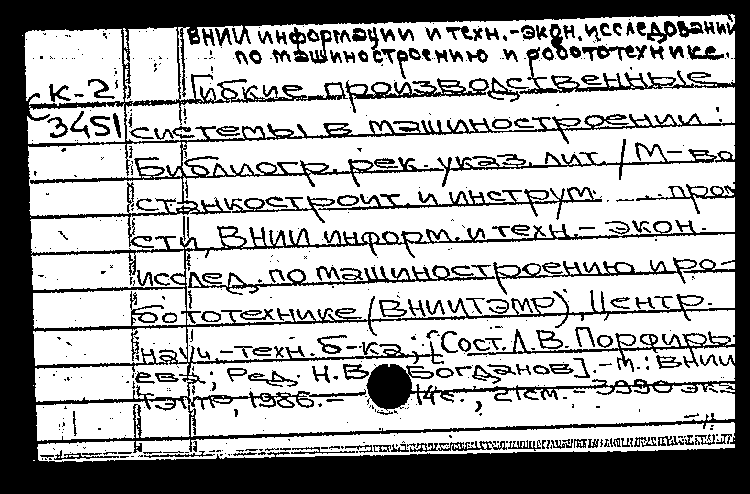 ВНИИ информации и техн.-экон. исследований
по машиностроению и робототехнике.
СК-2 Гибкие производственные
3451 системы в машиностроении:
Библиогр. рек. указ. лит. / М-во
станкостроит. и инструм. ... пром
сти, ВНИИ информ. и техн.- экон.
исслед. по машиностроению и ро-
бототехнике (ВНИИТЭМР), Центр.
науч.-техн. б-ка; [Сост. Л.В. Порфирь-
ева; Ред. Н.В. Богданов].-М.: ВНИИ
ТЭМР, 1986.- 14с.; 21см.- 3990 экз